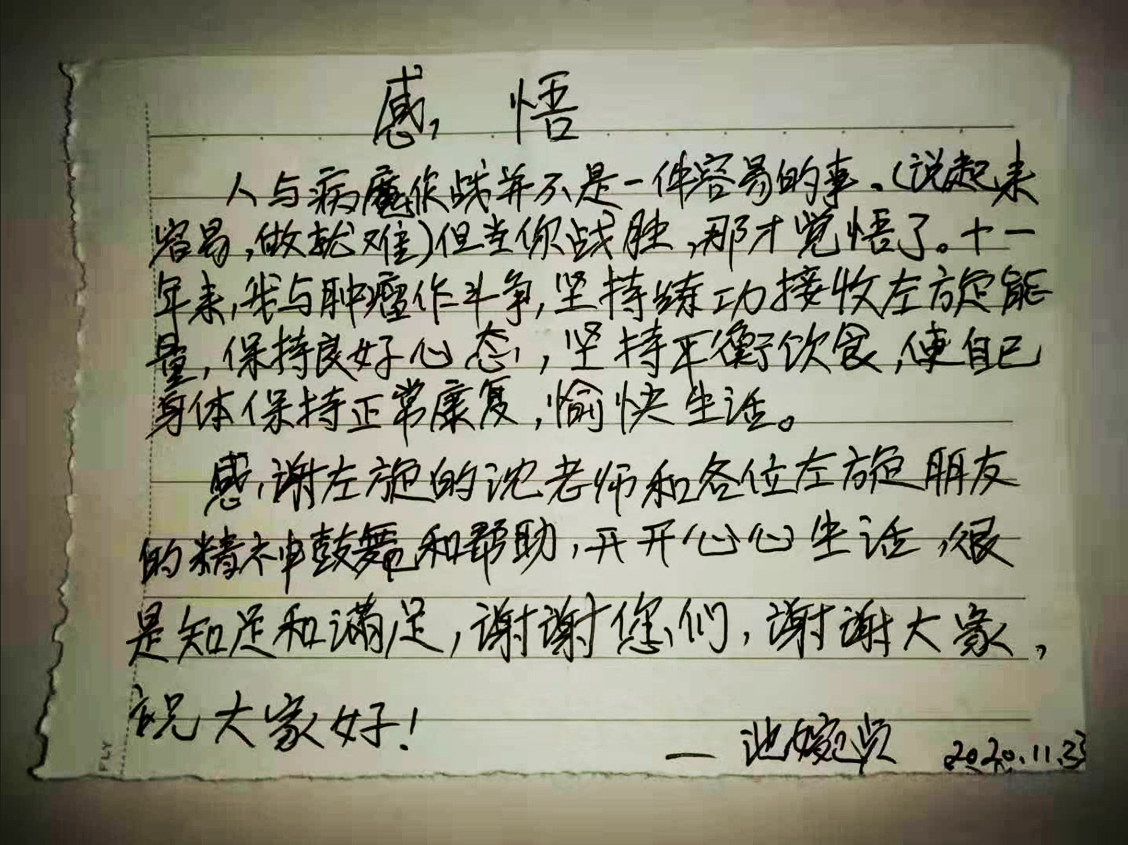 感 悟
人与病魔作战并不是一件容易的事。(说起来
容易,做就难)但当你战胜,那才觉悟了。十一
年来,我与肿瘤作斗争,坚持练功接收左旋能
量,保持良好心态,坚持平衡饮食,使自己
身体保持正常康复,愉快生活。
感谢左旋的沈老师和各位左旋朋友
的精神鼓舞和帮助,开开心心生活,很
是知足和满足,谢谢您们,谢谢大家,
祝大家好!
— 池婉 2020.11.
FLY